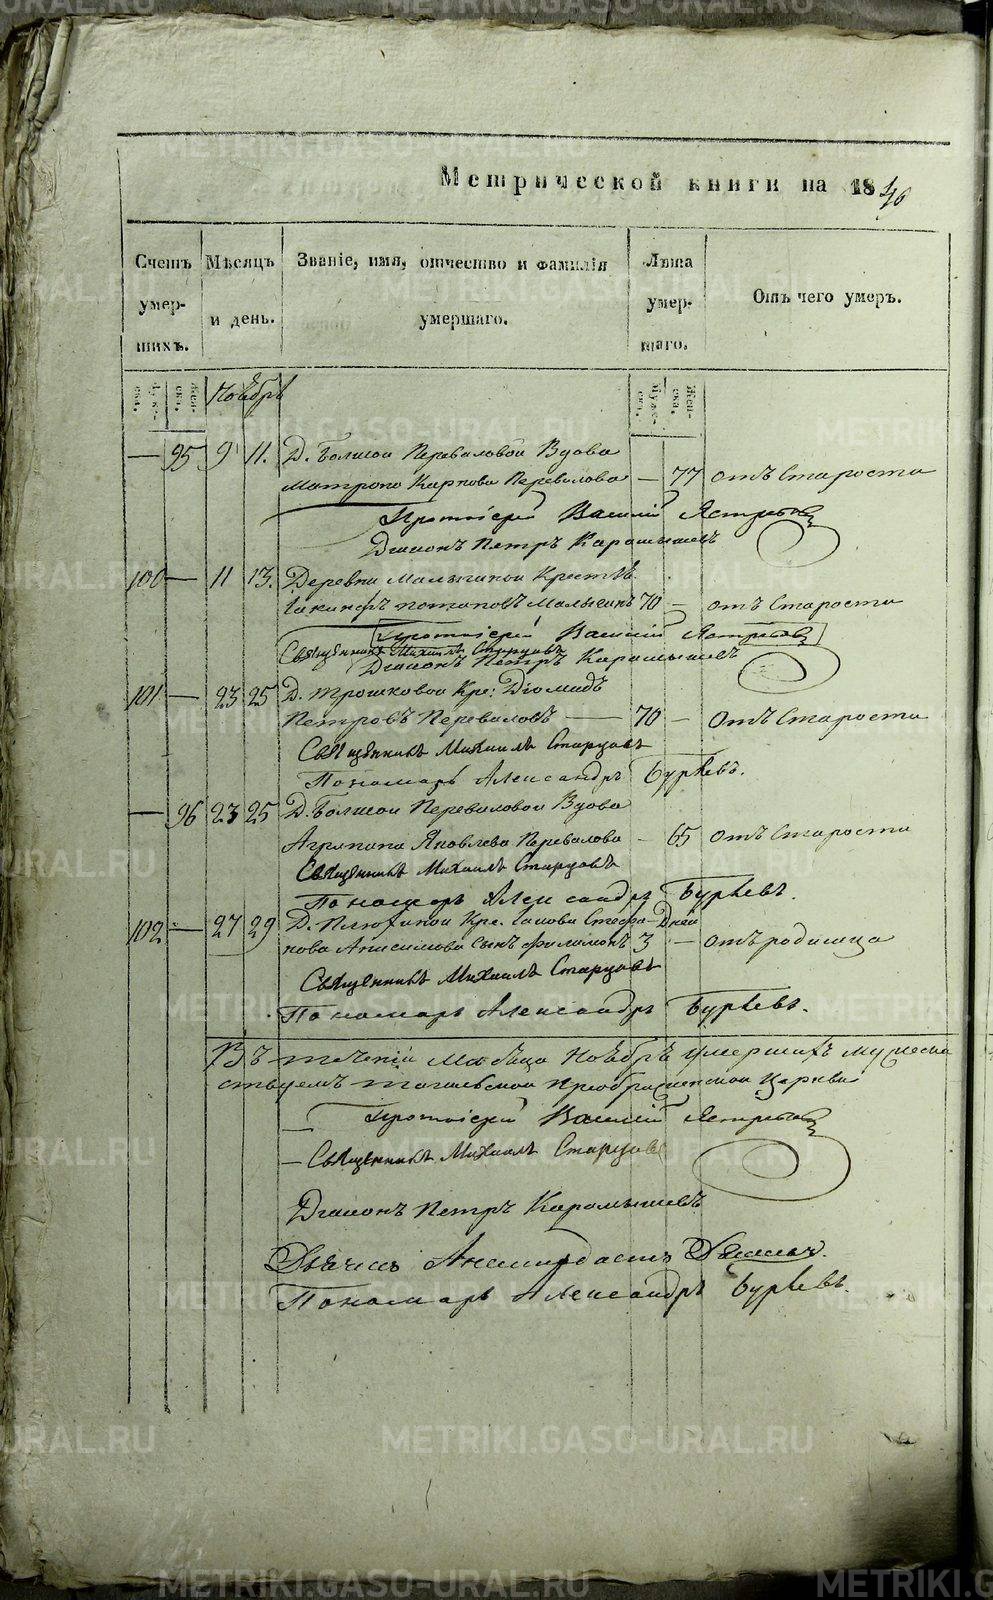 Метрической книги на 1840
Счетъ умершихъ.
Мѣсяцъ и день.
Званіе, имя, отчество и фамилія умершаго.
Лѣта умершаго.
Отъ чего умеръ.
Мужеска. Женска.
Ноябрь
Мужеска. Женска.
— 95 9 11. Д. Болшой Переваловой Вдова
Матрона Карпова Перевалова — 77 отъ Старости
Протоіерей Василій Ястребовъ
Діаконъ Петръ Карамышевъ
100 — 11 13. Деревни Малыгиной Крестья.
Іакинфъ Потаповъ Малыгинъ 70 — отъ Старости
Протоіерей Василій Ястребовъ
Священникъ Михаилъ Старцовъ
Діаконъ Петръ Карамышевъ
101 — 23 25 Д. Трошковой Кре: Діомидъ
Петровъ Переваловъ — 70 — отъ Старости
Священникъ Михаилъ Старцовъ
Пономарь Александръ Бурķевъ.
— 96 23 25 Д. Болшой Переваловой Вдова
Агрипина Яковлева Перевалова — 65 отъ Старости
Священникъ Михаилъ Старцовъ
Пономарь Александръ
102 — 27 29 Д. Плюхиной Кре. Іакова Стефа- Дней
нова Анисимова сынъ Филимонъ 3 — отъ родимца
Священникъ Михаилъ Старцовъ
Пономарь Александръ
Въ теченіи Мѣсяца Ноябрѣ умершихъ
Преображенской Церкви
Протоіерей Василій Ястребовъ
— Священникъ Михаилъ Старцовъ
Діаконъ Петръ Карамышевъ
Дьячекъ
Пономарь Александръ
METRIKI.GASO-URAL.RU